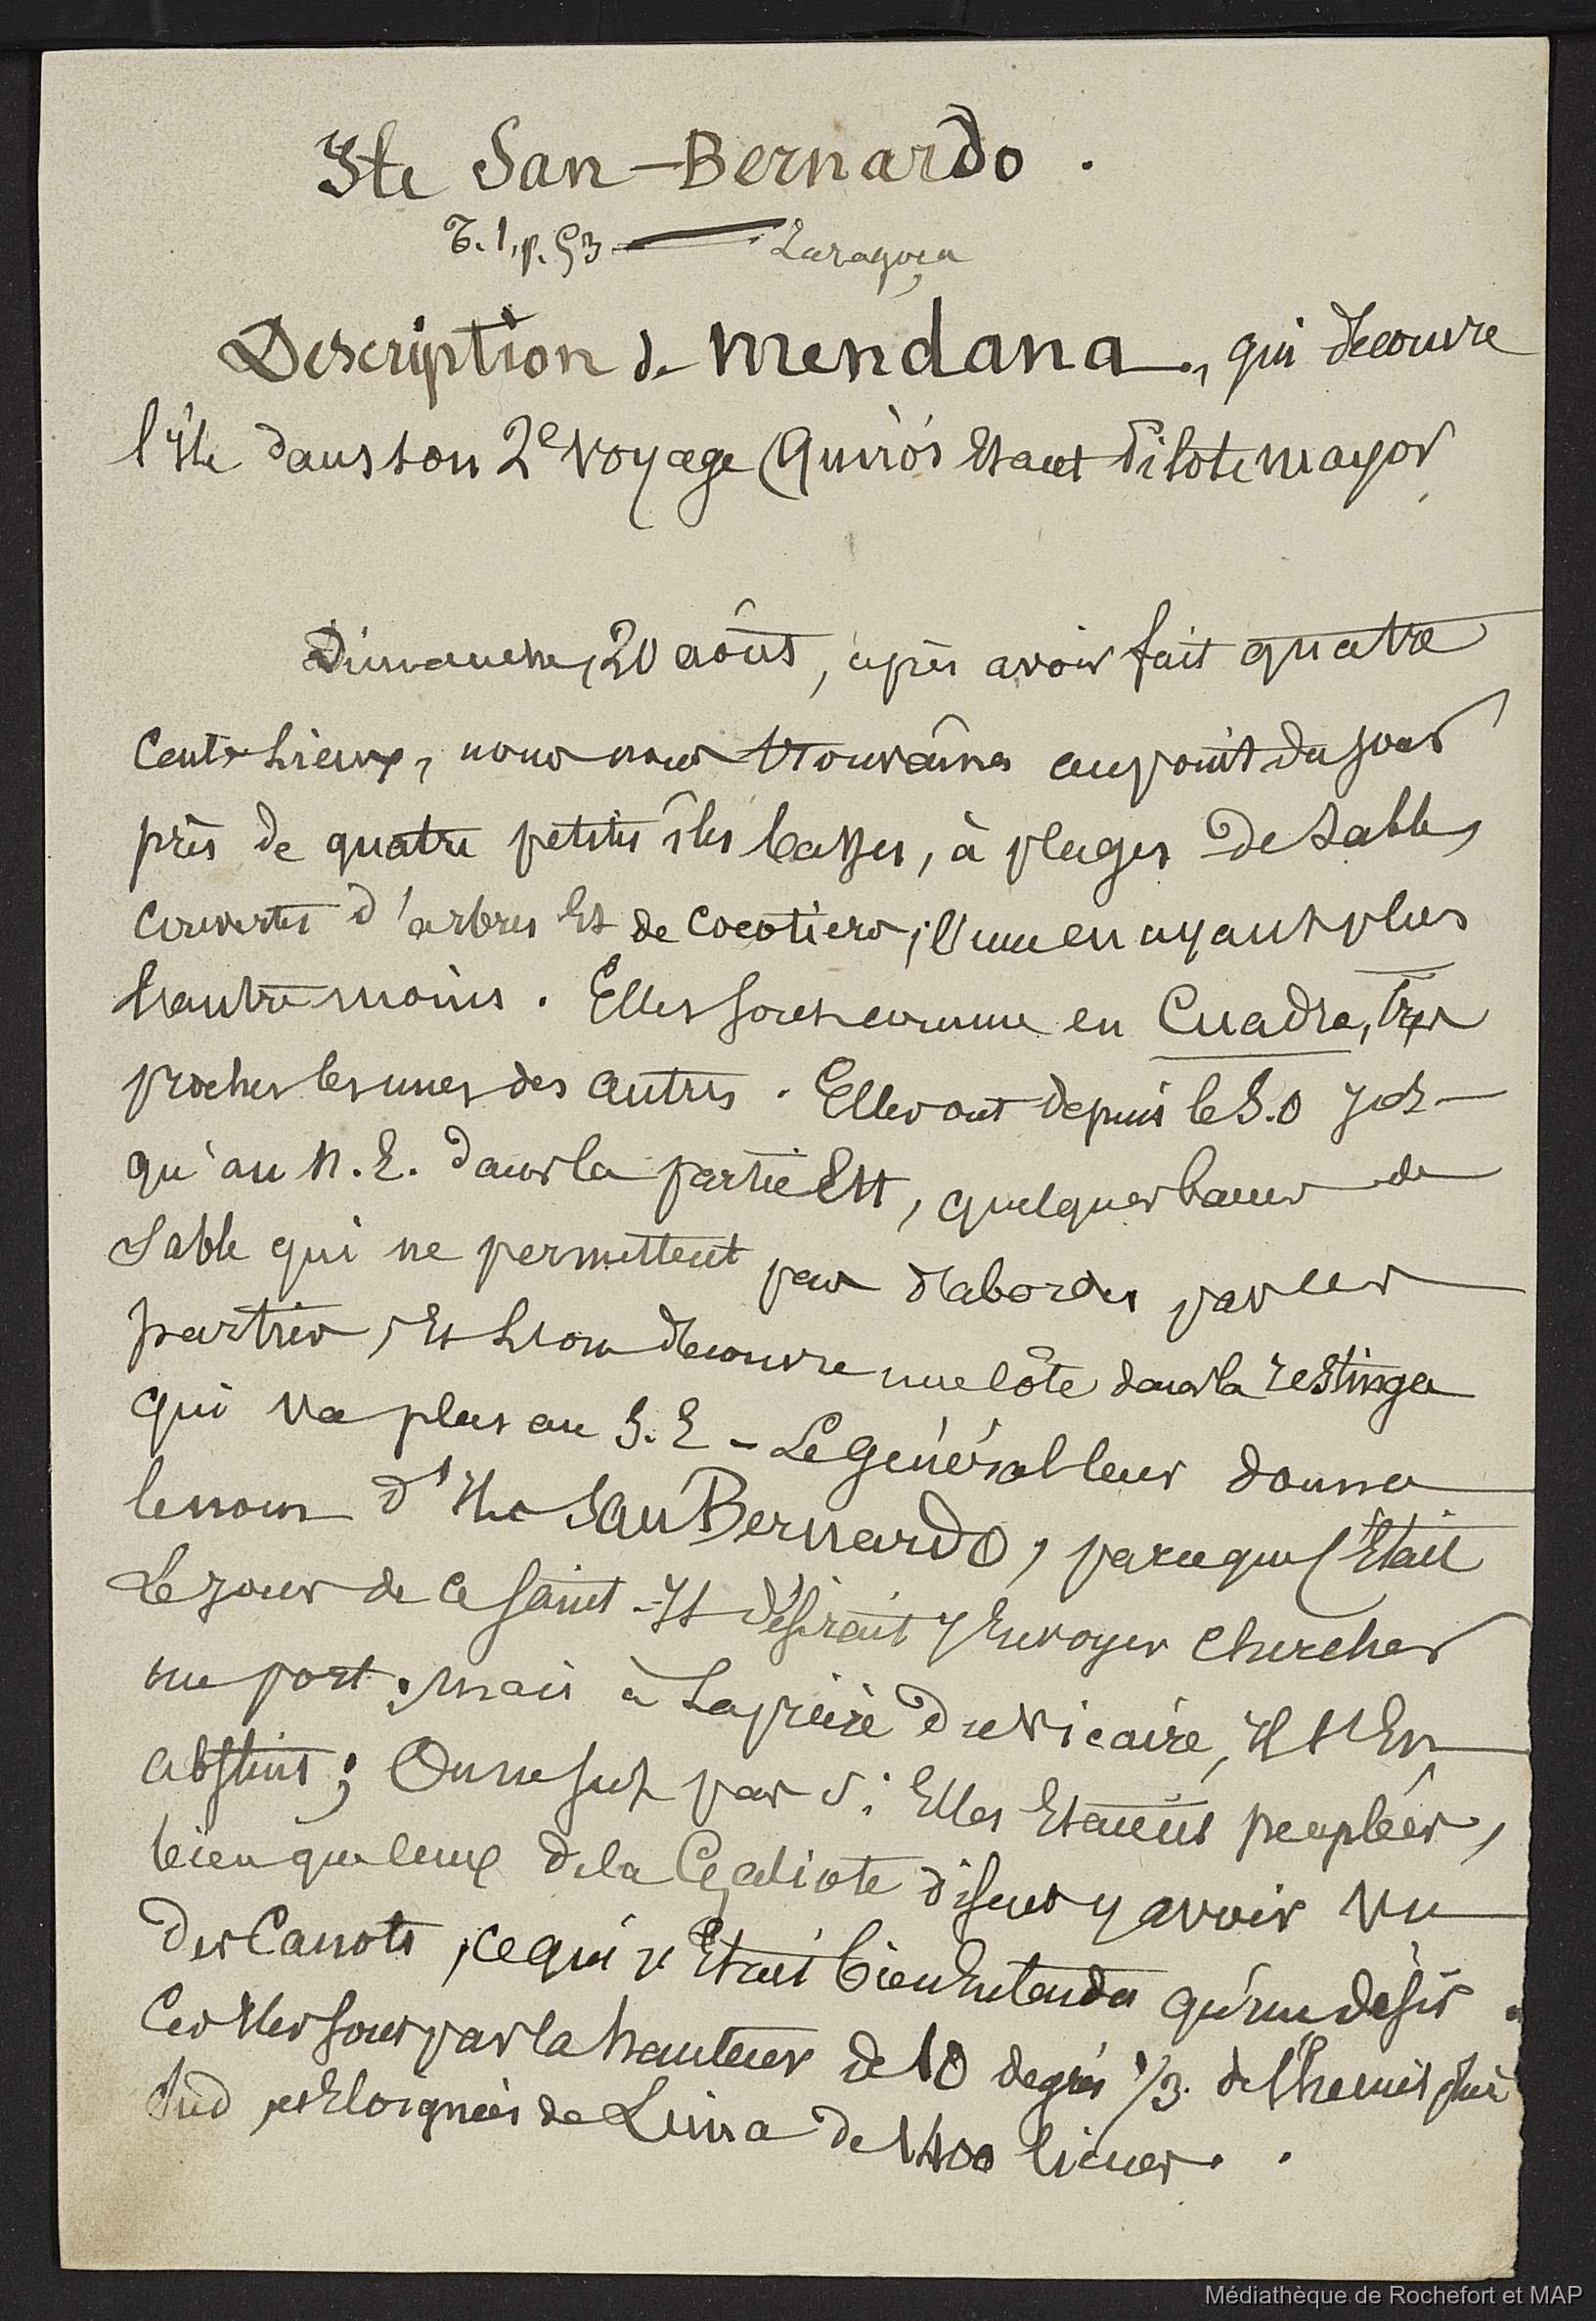 Ile San-Bernardo.
T.1, p.53 — Zaragoça
Description de Mendana, qui decouvre
l'Ile dans son 2e voyage (Quiros Etant Pilote mayor
Dimanche, 20 août, après avoir fait quatre
Cents Lieux, nous nous trouvâmes au point du jour
près de quatre petites îles basses, à plages De Sable,
couvertes d'arbres Et de cocotiers; l'une en ayant plus
L'autre moins. Elles sont comme en Cuadra, très
proches les unes des autres. Elles ont depuis le S.O jus-
qu'au N.E. dans la partie Est, quelques bancs de
Sable qui ne permettent pas d'aborder par ces
parties, Et L'on decouvre une côte dans la restinga
qui va plus au S.E - Le Général leur donna
le nom d'Ile San Bernardo, parceque c'Etait
Le jour de ce Saint - Il désirait y Envoyer chercher
un port; mais à La prière du Vicaire, Il s'En
abstint; On ne sut pas si Elles Etaient peuplées,
bien que ceux de la Galiote disent y avoir vu
des Canots, ce qui n'Etait bien Entendu qu'un désir.
Ces Iles sont par la hauteur de 10 degrés 1/3. de l'hemisphère
Sud, et Eloignées de Lima de 1400 lieues.
Médiathèque de Rochefort et MAP